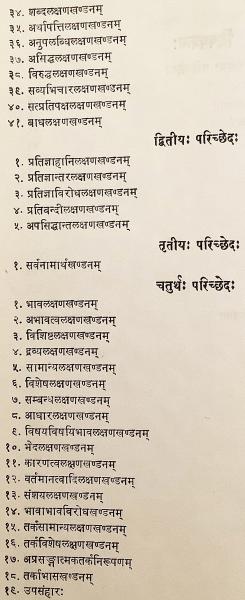 ३४. शब्दलक्षणखण्डनम्
३५. अर्थापत्तिलक्षणखण्डनम्
३६. अनुपलब्धिलक्षणखण्डनम्
३७. असिद्धलक्षणखण्डनम्
३८. विरुद्धलक्षणखण्डनम्
३९. सव्यभिचारलक्षणखण्डनम्
४०. सत्प्रतिपक्षलक्षणखण्डनम्
४१. बाधलक्षणखण्डनम्
द्वितीयः परिच्छेदः
१. प्रतिज्ञाहानिलक्षणखण्डनम्
२. प्रतिज्ञान्तरलक्षणखण्डनम्
३. प्रतिज्ञाविरोधलक्षणखण्डनम्
४. प्रतिबन्दीलक्षणखण्डनम्
५. अपसिद्धान्तलक्षणखण्डनम्
तृतीयः परिच्छेदः
१. सर्वनामार्थखण्डनम्
चतुर्थः परिच्छेदः
१. भावलक्षणखण्डनम्
२. अभावत्वलक्षणखण्डनम्
३. विशिष्टलक्षणखण्डनम्
४. द्रव्यलक्षणखण्डनम्
५. सामान्यलक्षणखण्डनम्
६. विशेषलक्षणखण्डनम्
७. सम्बन्धलक्षणखण्डनम्
८. आधारलक्षणखण्डनम्
९. विषयविषयिभावलक्षणखण्डनम्
१०. भेदलक्षणखण्डनम्
११. कारणत्वलक्षणखण्डनम्
१२. वर्तमानत्वादिलक्षणखण्डनम्
१३. संशयलक्षणखण्डनम्
१४. भावाभावविरोधखण्डनम्
१५. तर्कसामान्यलक्षणखण्डनम्
१६. तर्कविशेषलक्षणखण्डनम्
१७. अप्रसङ्गात्मकतर्कनिरूपणम्
१८. तर्काभासखण्डनम्
१९. उपसंहारः